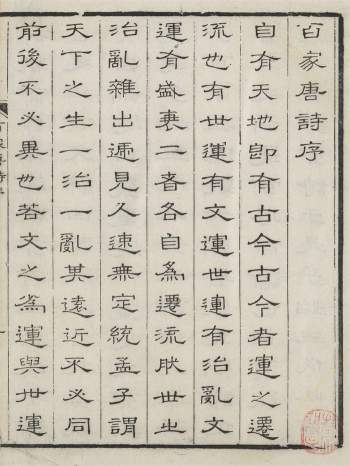 百家唐詩序
自有天地即有古今古今者運之遷
流也有世運有文運世運有治亂文
運有盛衰二者各自為遷流然世之
治亂雜出遞見久速無定統孟子謂
天下之生一治一亂其遠近不必同
前後不必異也若文之為運與世運